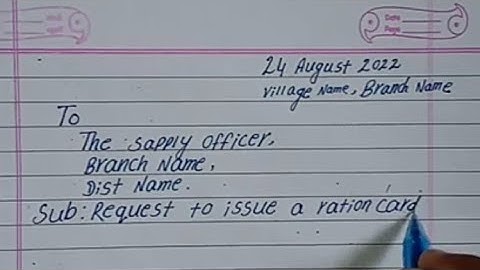 Date
Page
24 August 2022
Village Name, Branch Name
To
The Sapply Officer,
Branch Name,
Dist Name.
Sub: Request to issue a ration card